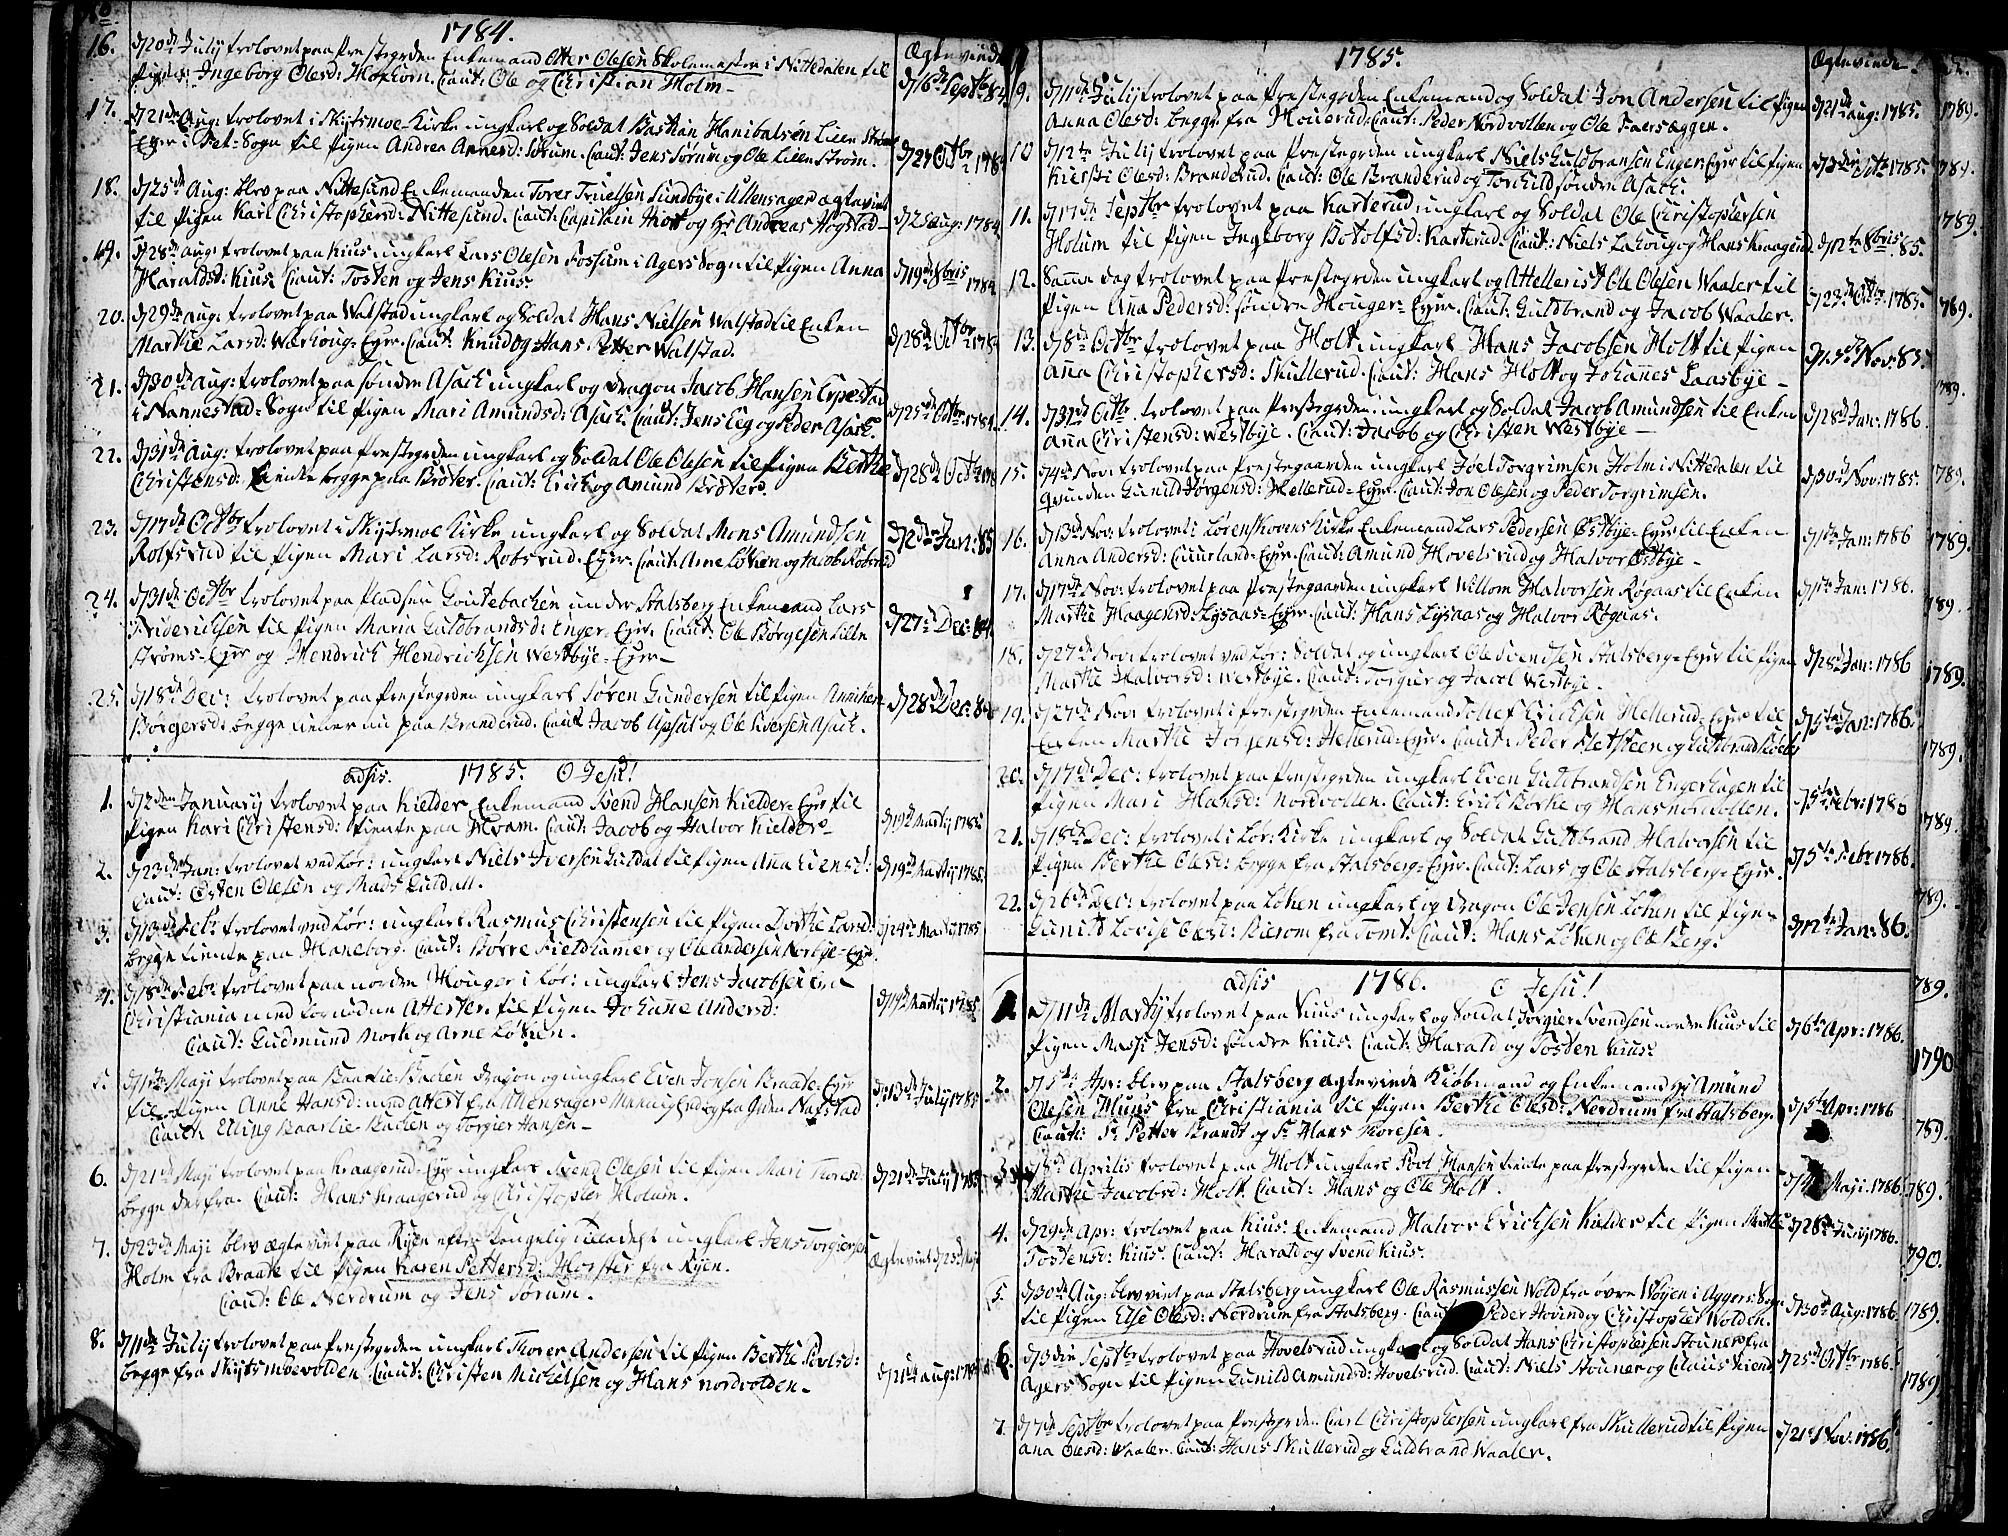 1784.
Ægteviede
16. d 20de Julij trolovet paa Præstegrden Enkemand Otter Olesen Skolemester i Nittedalen til
Pigen: Ingeborg Olesd: Caut: Ole og Christian Holm - d 16de Septbr 84
17. d 21de Aug: trolovet i Skytsmoe Kirke ungkarl og Soldat Bastian Hanibalsen Lille Strøm
Eyer i Fet-Sogn til Pigen Andrea Arnesd: Sørum. Caut: Jens Sørum og Ole Lillestrøm. d 27 Octbr 1784
18. d 25de Aug: blev paa Nittesund Enkemanden Torer Truelsen Sundbye i Ullensager ægteviet
til Pigen Kari Christophersd: Nittesund. Caut: Capitain og Hr Andreas Høgstad - d 25 aug: 1784
19. d 28de aug: trolovet paa Kius ungkarl Lars Olesen Fossum i Agers Sogn til Pigen Anna
Haraldsd: Kius. Caut: Tosten og Jens Kius. d 19de 8bris 1784
20. d 29de aug: trolovet paa Walstad ungkarl og Soldat Hans Nielsen Walstad til Enken
Marthe Larsd: Eyer. Caut: Knud og Hans Petter Walstad. d 28de Octbr 1784
21. d 30de Aug: trolovet paa søndre Asach ungkarl og Dragon Jacob Hansen
i Nannestad-Sogn til Pigen Mari Amundsd: Asach. Caut: Jens Eeg og Peder Asach. d 25de Octbr 1784.
22. d 31de Aug: trolovet paa Prestegrden ungkarl og Soldat Ole Olesen til Pigen Berthe
Christensd: tiente begge paa Brøter. Caut: Erich og Amund Brøter. d 28de Octbr
23. d 17de Octbr trolovet i Skytsmoe Kirke ungkarl og Soldat Mons Amundsen
Rolfsrud til Pigen Mari Larsd: Robsrud-Eyer. Caut: Arne Løken og Jacob Robsrud d 2den Jan: 85
24. d 31de Octbr trolovet paa Pladsen under Stalsberg Enkemand Lars
Friderichsen til Pigen Maria Guldbrandsd: Enger-Eyer. Caut: Ole Børgesen Lille d 27de Dec: 84.
Strøms-Eyer og Hendrich Hendrichsen Westbye-Eyer-
25. d 18de Dec: trolovet paa Prestegrden ungkarl Søren Gundersen til Pigen
Borgersd: begge paa Branderud. Caut: Jacob og Ole Iversen Asach. d 28de Dec: 84
adsis. 1785. O Jesu!
1. d 2den January trolovet paa Kielder Enkemand Svend Hansen Kielder-Eyer til
Pigen Kari Christensd: tiente paa Hvam. Caut: Jacob og Halvor Kielder- d 19de Martij 1785
2. d 23de Jan: trolovet ved Lør: ungkarl Niels Iversen Guldal til Pigen Anna
Caut: Østen Olesen og Mads Guldall. d 19de Martij 1785.
3. d 13de Febr: trolovet ved Lør: ungkarl Rasmus Christensen til Pigen Dorthe Larsd:
begge tiente paa Haneborg. Caut: Borre Fieldhamer og Ole Andersen -Eyer. d 24de Martij 1785
4. d 18de Febr: trolovet paa norden Houger i Lør: ungkarl Jens Jacobsen fra
Christiania med Attester til Pigen Johane Andersd: d 19de Martij 1785
Caut: Gudmund Mork og Arne Løken.
5. d 1ste Maji trolovet paa Baarlie-Bachen Dragon og ungkarl Even Jonsen Braate-Eyer
til Pigen Anne Hansd: med attest fra Ullensager d 13de Julij 1785
Caut: Elling Baarlie-Bachen og Torgier Hansen-
6. d 21de Maji trolovet paa Kraagerud-Eyer ungkarl Svend Olesen til Pigen Mari Thoresd: d 21de Julij 1785
begge derfra. Caut: Hans Kraagerud og Christopher Holum.
7. d 23de Maji blev ægteviet paa Ryen efter Kongelig Tilladelse ungkarl Jens Torgiersen
Holm fra Braate til Pigen Karen Pettersd: Horster fra Ryen. Ægteviet d 23de Maji
Caut: Ole Nerdrum og Jens Sørum.
8. d 11de Julij trolovet paa Prestegrden ungkarl Thorer Andersen til Pigen Berthe Povelsd:
begge fra Skytsmoevolden. Caut: Christen Michelsen og Hans Nordvolden- d 21de aug: 1785
1785.
Ægteviede.
9. d 11de Julij trolovet paa Prestegrden Enkemand og Soldat Jon Andersen til Pigen
Anna Olesd: begge fra Mouerud. Caut: Peder Nordvollen og Ole Faersæggen. d 21de aug: 1785.
10 d 12te Julij trolovet paa Prestegrden ungkarl Niels Guldbransen Enger-Eyer til Pigen
Kiersti Olesd: Branderud. Caut: Ole Branderud og Torchild søndre Asach. d 3die Octr 1785.
11. d 17de Septbr trolovet paa Karterud ungkarl og Soldat Ole Christophersen
Holum til Pigen Ingeborg Botolfsd: Karterud. Caut: Niels Lahoug og Hans Kraagerud. d 12te 8bris 85.
12. Samme dag trolovet paa Prestegrden ungkarl og Attellerist Ole Olesen Waaler til
Pigen Ana Pedersd: søndre Houger-Eyer. Caut: Guldbrand og Jacob Waaler. d 23de Octr 1785.
13. d 8de Octbr trolovet paa Holt ungkarl Hans Jacobsen Holt til Pigen
Anna Christophersd: Skullerud. Caut: Hans Holt og Johannes Laasbye- Nov: 85.
14. d 31de Octbr trolovet paa Prestegrden ungkarl og Soldat Jacob Amundsen til Enken
Anna Christensd: Westbye. Caut: Jacob og Christen Westbye- d 28de Jan: 1786.
15. d 4de Nov: trolovet paa Prestegaarden ungkarl Joel Torgrimsen Holm i Nittedalen til
Qvinden Gunild Jørgensd: Hellerud-Eyer. Caut: Jon Olesen og Peder Torgrimsen. d 30de Nov: 1785.
16. d 13de Nov: trolovet i Lørenskovens Kirke Enkemand Lars Pedersen Østbye-Eyer til Enken
Anna Andersd: Cuurland-Eyer. Caut: Amund Hovelsrud og Halvor Østbye- d 1ste Jan: 1786
17. d 17de Nov: trolovet paa Prestegaarden ungkarl Willom Halvorsen Røgaas til Enken
Marthe Haagensd: Lysaas-Eyer. Caut: Hans Lysaas og Halvor Røgaas. d 1ste Jan: 1786.
18. d 27de Nov: trolovet ved Lør: Soldat og ungkarl Ole Svendsen Stalsberg-Eyer til Pigen
Marthe Halvorsd: Westbye. Caut: Torgier og Jacob Westbye. d 28de Jan: 1786
19. d 27de Nov: trolovet i Prestegrden Enkemand Tollef Erichsen Hellerud-Eyer til
Enken Marthe Jørgensd: Hellerud-Eyer. Caut: Peder og Guldbrand d 5te Jan: 1786.
20. d 17de Dec: trolovet paa Prestegrden ungkarl Even Guldbrandsen Engerhagen til
Pigen Mari Hansd: Nordvollen. Caut: Erich Borke og Hans Nordvollen. d 5te Febr: 1786
21. d 18de Dec: trolovet i Lør: Kirke ungkarl og Soldat Guldbrand Halvorsen til
Pigen Berthe Olesd: begge fra Stalsberg-Eyer. Caut: Lars og Ole Stalsberg-Eyer. d 5te Febr 1786.
22. d 26de Dec: trolovet paa Løken ungkarl og Dragon Ole Jensen Løken til Pigen
Gunild Lovise Olesd: Bierom fra Tomt. Caut: Hans Løken og Ole Berg. d 12te Jan: 86.
adsis 1786. O Jesu!
1. d 11de Martij trolovet paa Kius ungkarl og Soldat Torgier Svendsen nordre Kius til
Pigen Massi Jensd: søndre Kius. Caut: Harald og Tosten Kius. d 6te Apr: 1786.
2. d 5te Apr: blev paa Stalsberg ægteviede Kiøbmand og Enkemand Hr Amund
Olesen Muus fra Christiania til Pigen Berthe Olesd: Nerdrum fra Stalsberg. d 5te Apr: 1786
Caut: Sr Petter Brandt og Sr Hans Thoresen.
3 d 8de Aprilis trolovet paa Holt ungkarl Povl Hansen tiente paa Prestegrden til Pigen
Marthe Jacobsd: Holt. Caut: Hans og Ole Holt. Maji. 1786.
4. d 29de Apr: trolovet paa Kius. Enkemand Halvor Erichsen Kielder til Pigen Marthe
Tostensd: Kius. Caut: Harald og Svend Kius. d 28de Junij 1786.
5. d 30de Aug: blev viet paa Stalsberg ungkarl Ole Rasmussen Wold fra øvre Woyen i Aggers Sogn
til Pigen Else Olesd: Nerdrum fra Stalsberg. Caut: Peder Hovind og Christopher Wolden. d 30de Aug: 1786.
6. d 3die Septbr trolovet paa Hovelsrud ungkarl og Soldat Hans Christophersen Stouner fra
Agers Sogn til Pigen Gunild Amundsd: Hovelsrud. Caut: Niels Stouner og Claus d 25de Octbr 1786.
7. d 7de Septbr trolovet paa Prestegrden Carl Christophersen ungkarl fra Skullerud til Pigen
Ana Olesd: Waaler. Caut: Hans Skullerud og Guldbrand Waaler. d 21de Nov: 1786.
1789.
789.
1789.
789.
789.
1789.
1789.
789.
1789.
1789.
789.
789.
789.
1790
789.
789.
790.
1789.
1789